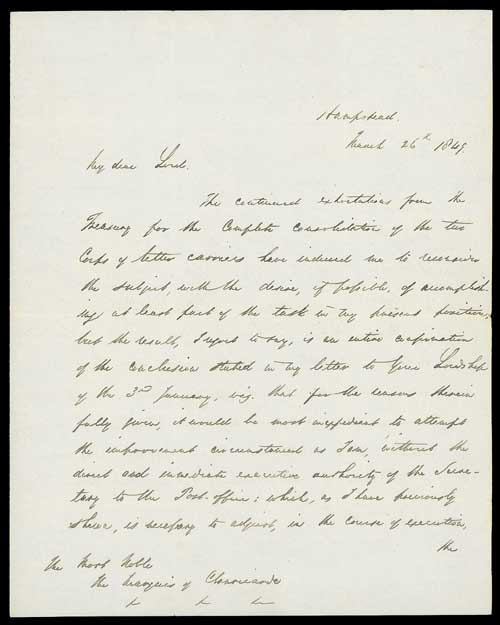 Hampstead.
March 26th 1849.
My dear Lord.
The continued exhortations from the
Treasury for the Complete consolidation of the two
Corps of letter carriers have induced me to reconsider
the subject, with the desire, if possible, of accomplish-
ing at least part of the task in my present position,
but the result, I regret to say, is an entire confirmation
of the conclusion stated in my letter to Your Lordship
of the 3rd January, viz. that for the reasons therein
fully given, it would be most inexpedient to attempt
the improvement circumstanced as I am, without the
direct and immediate executive authority of the Secre-
tary to the Post-office: which, as I have previously
shewn, is necessary to adjust, in the course of execution,
the
The Most Noble
the Marquis of Clanricarde